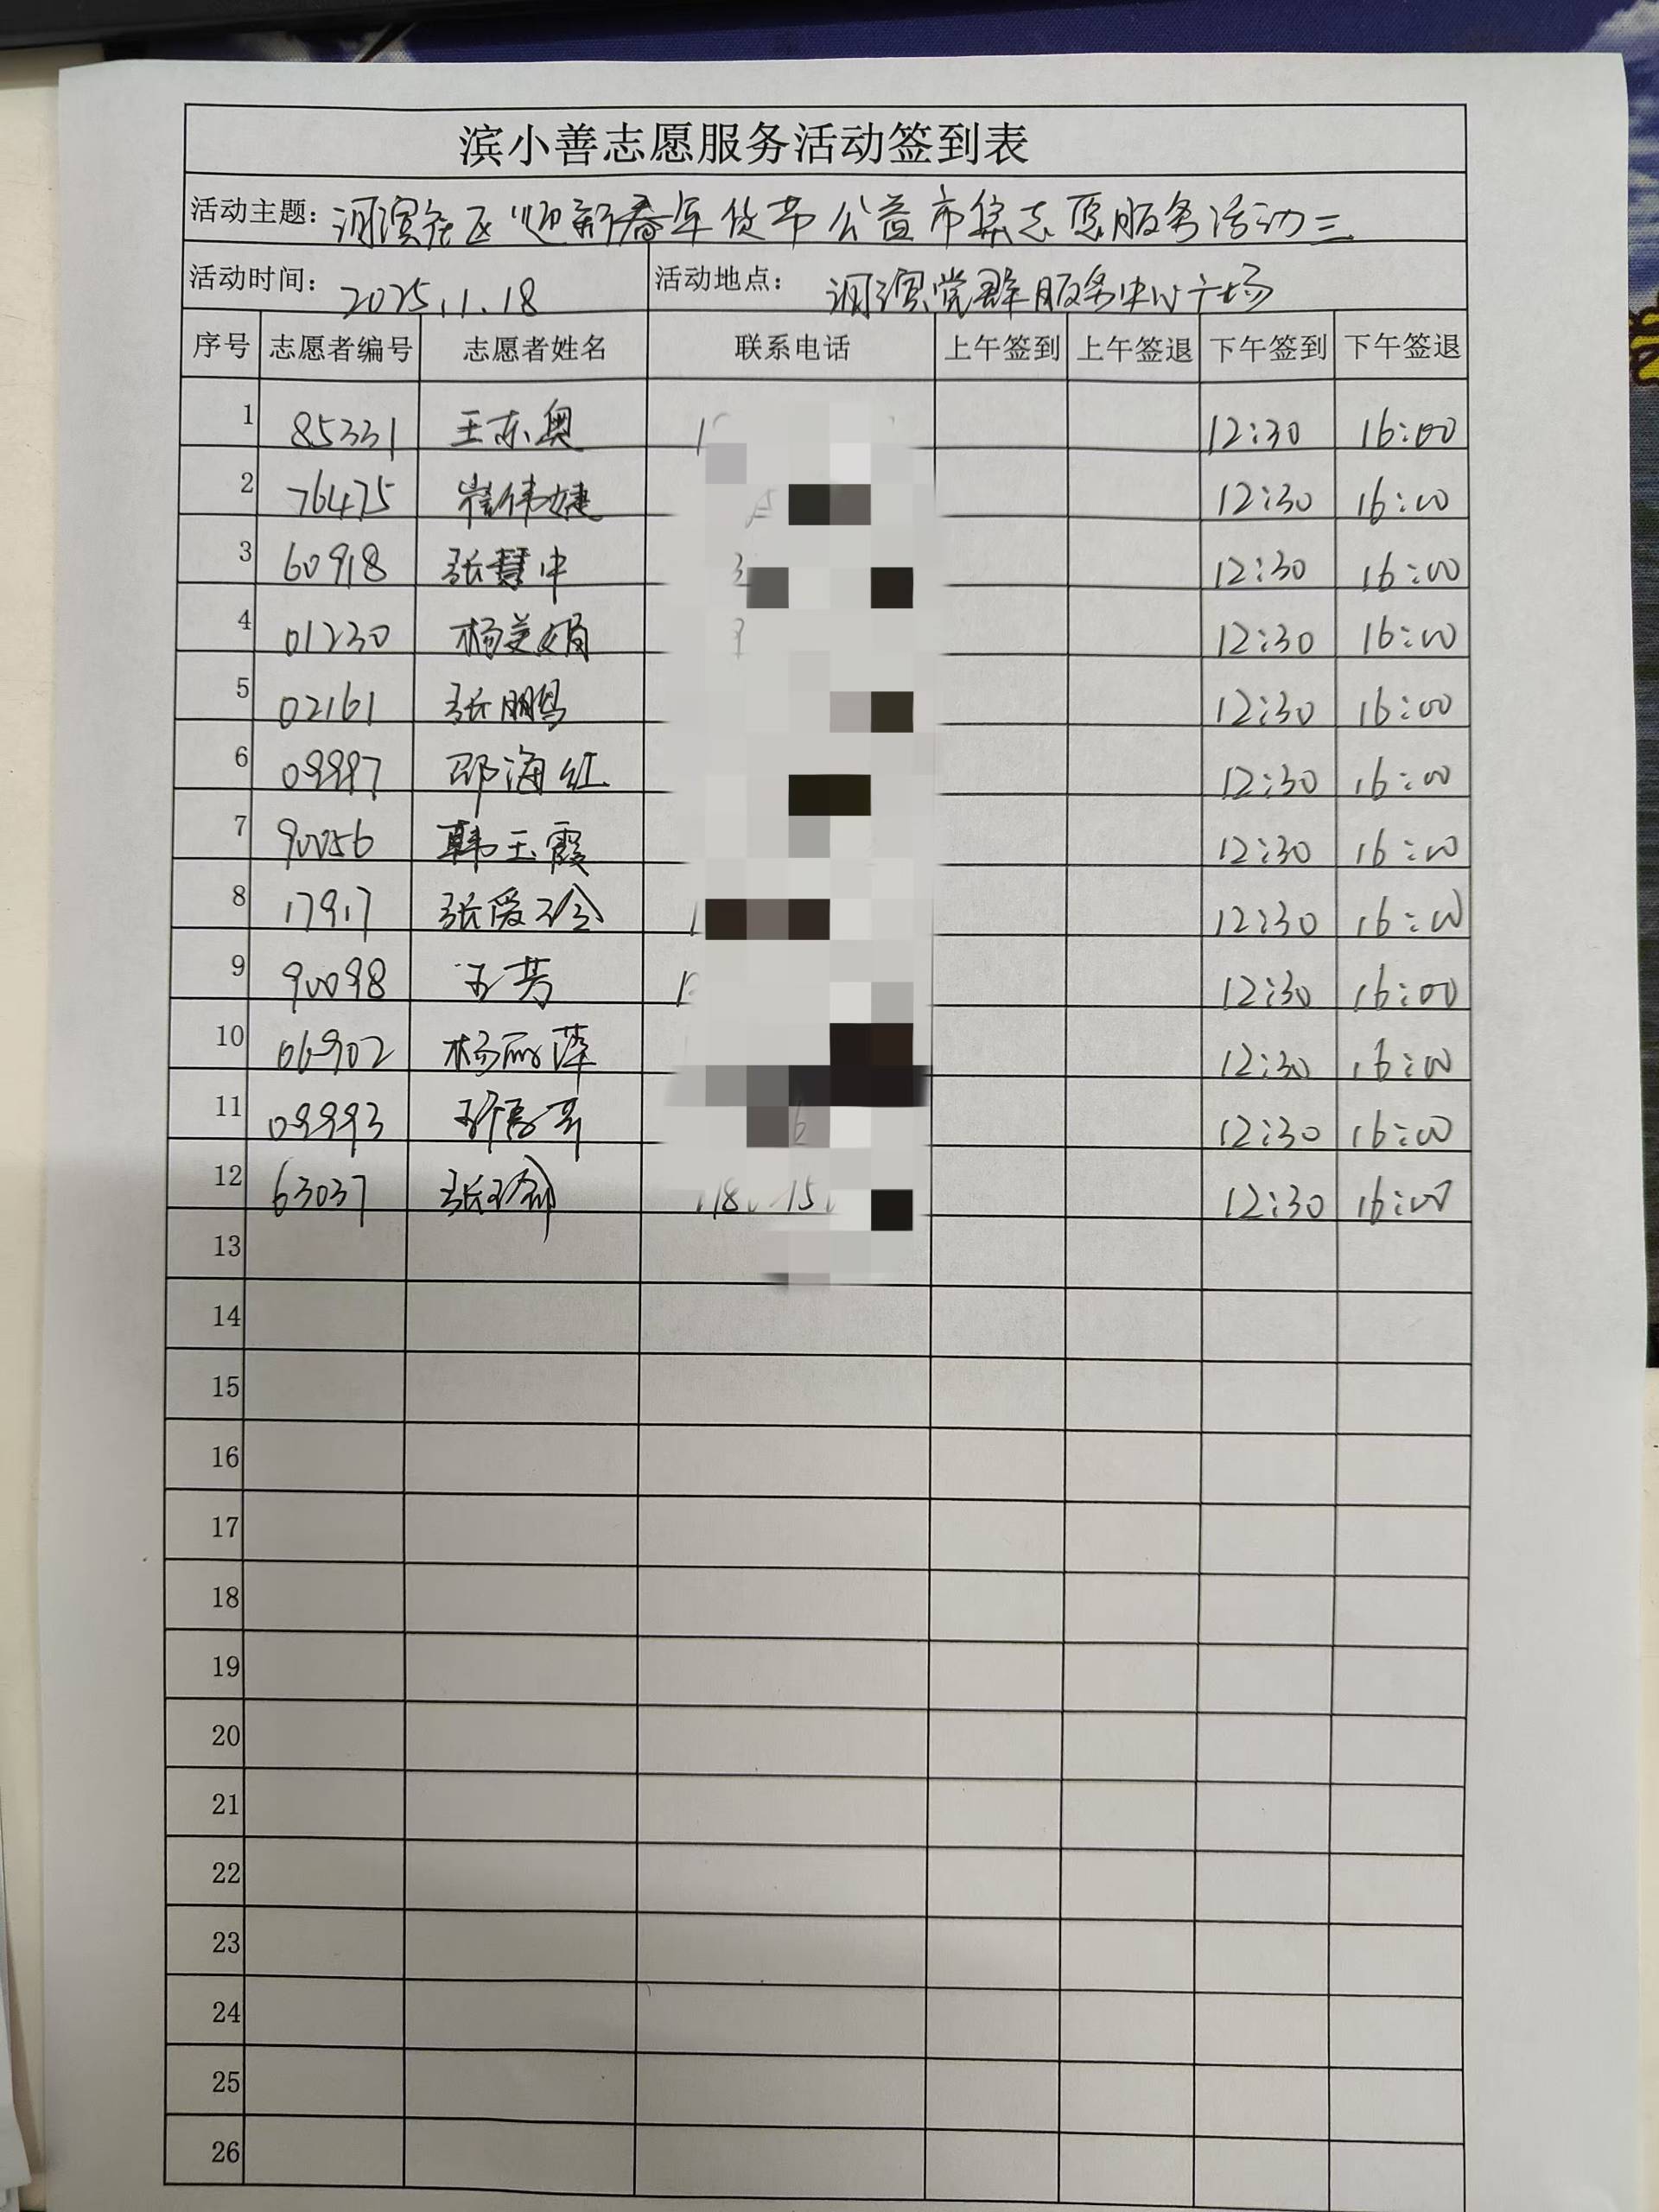 滨小善志愿服务活动签到表
活动主题：河滨社区"迎新春年货节公益市集志愿服务活动三
活动时间：2025.1.18 活动地点：河滨党群服务中心广场
序号 志愿者编号 志愿者姓名 联系电话 上午签到 上午签退 下午签到 下午签退
1 85331 王东奥 12:30 16:00
2 76475 崔伟婕 12:30 16:00
3 60918 张慧中 12:30 16:00
4 01230 杨美娟 12:30 16:00
5 02161 张鹏鸟 12:30 16:00
6 09997 邵海红 12:30 16:00
7 90056 韩玉霞 12:30 16:00
8 17917 张爱玲 12:30 16:00
9 90098 王芳 12:30 16:00
10 06902 杨丽萍 12:30 16:00
11 09993 12:30 16:00
12 63037 张 12:30 16:00
13
14
15
16
17
18
19
20
21
22
23
24
25
26